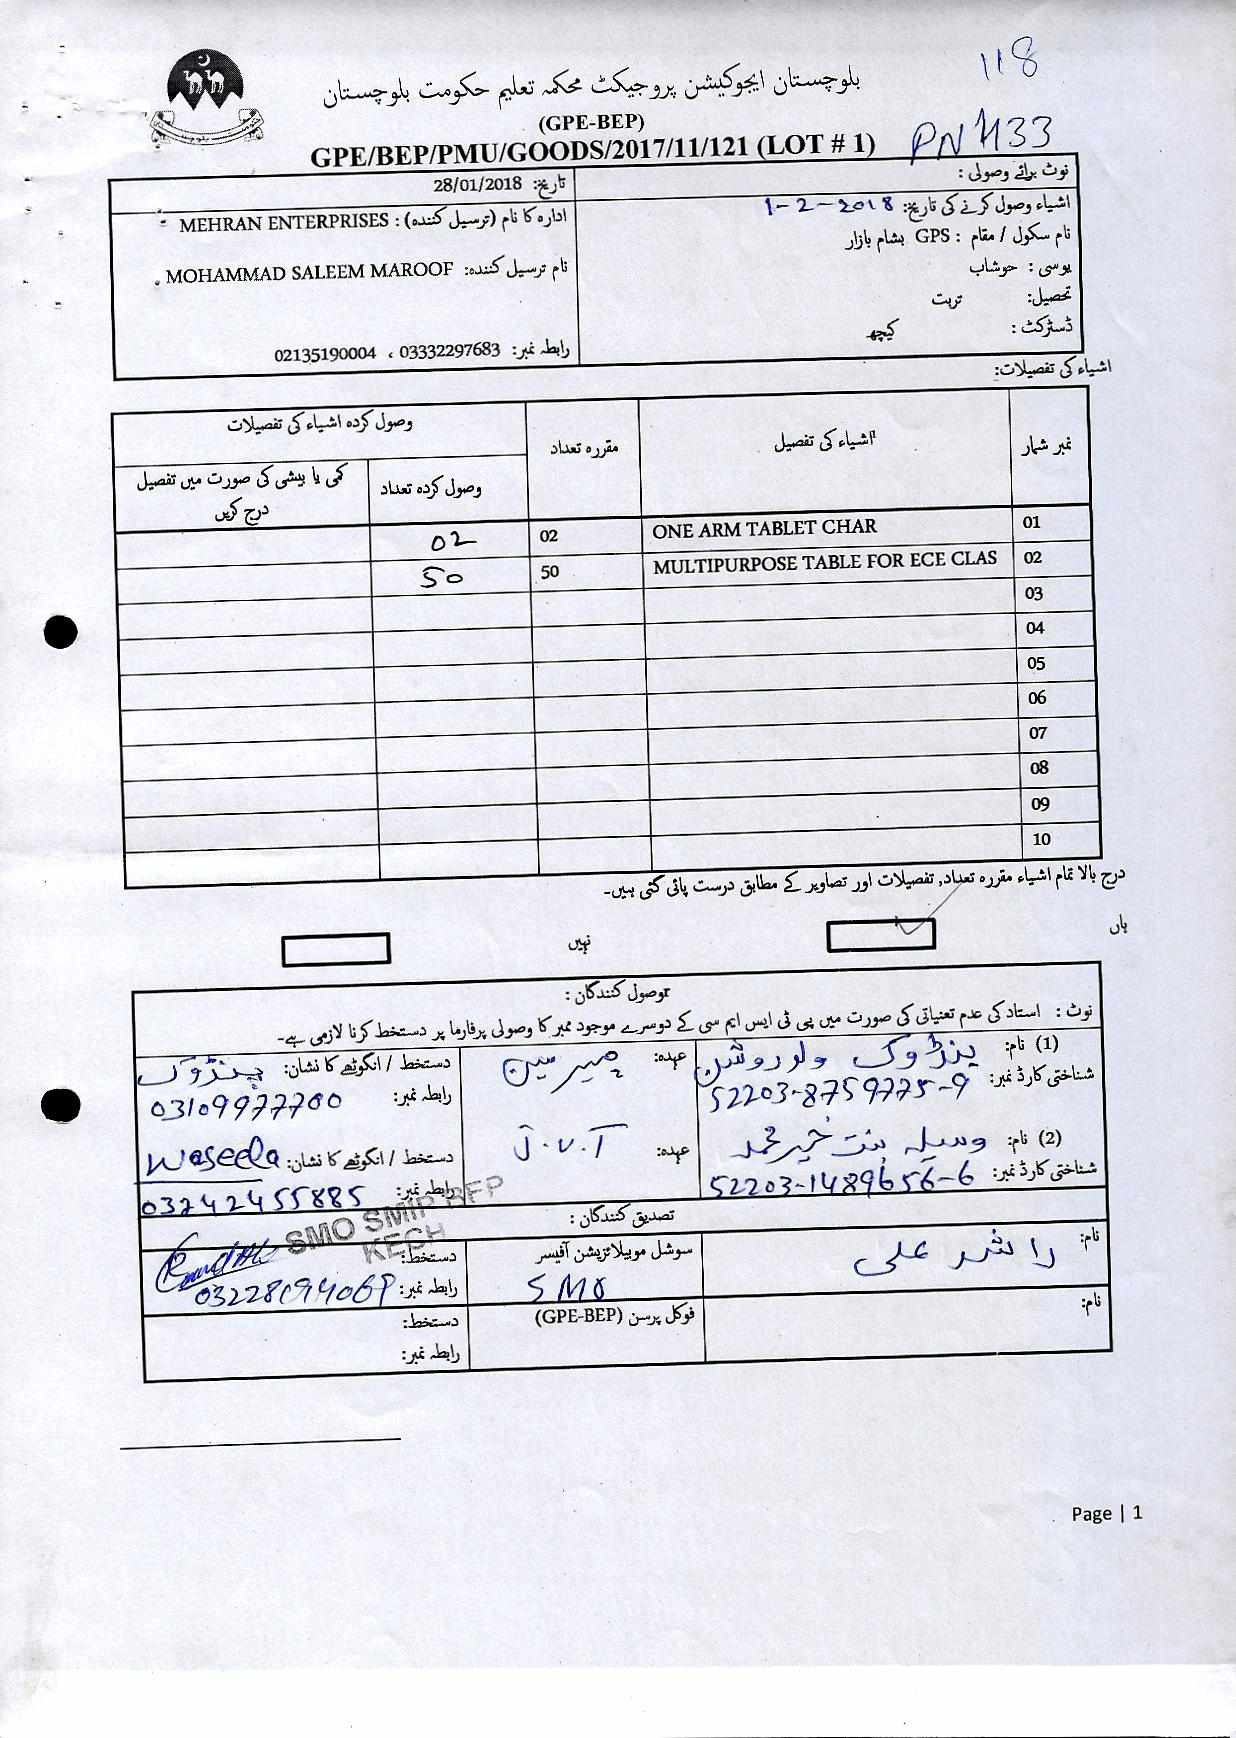 118
بلوچستان ایجوکیشن پروجیکٹ محکمہ تعلیم حکومت بلوچستان
(GPE-BEP)
GPE/BEP/PMU/GOODS/2017/11/121 (LOT # 1)
PN 1133
نوٹ برائے وصولی :
اشیاء وصول کرنے کی تاریخ: 1-2-2018
نام سکول / مقام : GPS بشام بازار
یوسی : حوشاب
تحصیل: تربت
ڈسٹرکٹ : کیچھ
تاریخ: 28/01/2018
ادارہ کا نام (ترسیل کنندہ) : MEHRAN ENTERPRISES
نام ترسیل کنندہ: MOHAMMAD SALEEM MAROOF
رابطہ نمبر: 03332297683 ، 02135190004
اشیاء کی تفصیلات:
نمبر شمار اشیاء کی تفصیل مقررہ تعداد وصول کردہ اشیاء کی تفصیلات
وصول کردہ تعداد کمی یا بیشی کی صورت میں تفصیل درج کریں
01 ONE ARM TABLET CHAR 02 02
02 MULTIPURPOSE TABLE FOR ECE CLAS 50 50
03
04
05
06
07
08
09
10
درج بالا تمام اشیاء مقررہ تعداد, تفصیلات اور تصاویر کے مطابق درست پائی گئی ہیں۔
ہاں نہیں
وصول کنندگان :
نوٹ : استاد کی عدم تعنیاتی کی صورت میں پی ٹی ایس ایم سی کے دوسرے موجود ممبر کا وصولی پرفارما پر دستخط کرنا لازمی ہے۔
(1) نام: پنڈوک ولد روشن عہدہ: چیرمین دستخط / انگوٹھے کا نشان: پنڈوک
شناختی کارڈ نمبر: 52203-8759775-9 رابطہ نمبر: 03109977700
(2) نام: وسیلہ بنت خیر محمد عہدہ: J.V.T دستخط / انگوٹھے کا نشان: Waseela
شناختی کارڈ نمبر: 52203-1489656-6 رابطہ نمبر: 03242455885
SMO SMIP BEP
KECH
تصدیق کنندگان :
نام: راشد علی سوشل موبیلائزیشن آفیسر دستخط:
SMO رابطہ نمبر:
نام: فوکل پرسن (GPE-BEP) دستخط:
رابطہ نمبر:
Page | 1